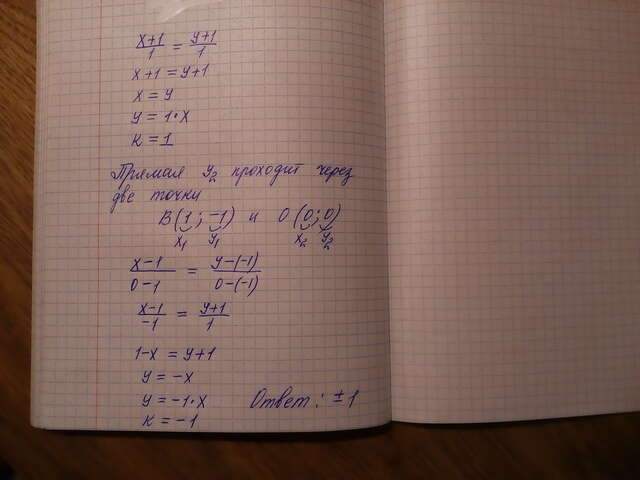 x+1/1 = y+1/1
x+1 = y+1
x = y
y = 1·x
k = 1
Прямая y₂ проходит через
две точки
B(1; -1) и O(0; 0)
x₁ y₁ x₂ y₂
x-1/0-1 = y-(-1)/0-(-1)
x-1/-1 = y+1/1
1-x = y+1
y = -x
y = -1·x Ответ: ±1
k = -1